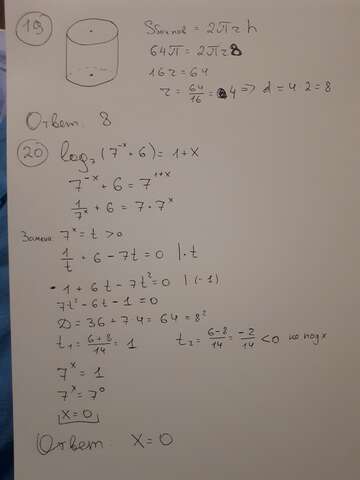 19 Sбок.пов = 2πrh
64π = 2πr8
16r = 64
r = 64/16 = 4 => d = 4·2 = 8
Ответ: 8
20 log₇(7⁻ˣ+6) = 1+x
7⁻ˣ + 6 = 7¹⁺ˣ
1/7ˣ + 6 = 7·7ˣ
Замена 7ˣ = t > 0
1/t + 6 - 7t = 0 |·t
1 + 6t - 7t² = 0 |·(-1)
7t² - 6t - 1 = 0
D = 36 + 7·4 = 64 = 8²
t₁ = 6+8/14 = 1 t₂ = 6-8/14 = -2/14 < 0 не подх
7ˣ = 1
7ˣ = 7⁰
x = 0
Ответ: x = 0